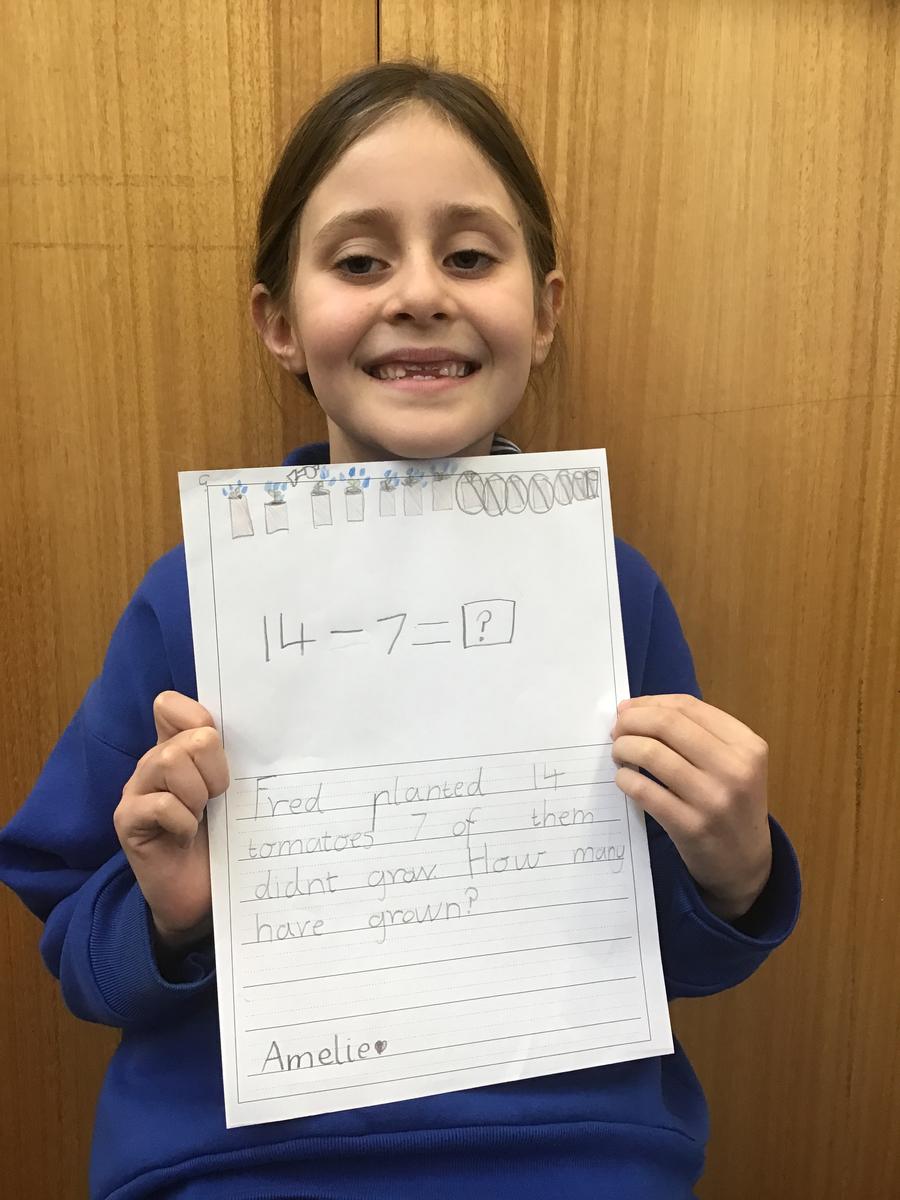 14 - 7 = ?
Fred planted 14
tomatoes 7 of them
didnt grow. How many
have grown?
Amelie